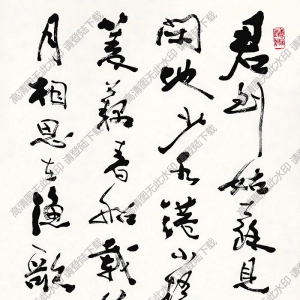 君到姑苏见
闲地少水港小
菱藕春船载
月相思在渔歌
高清图无此水印 请登陆下载